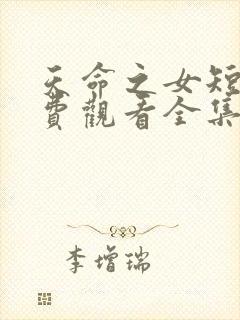 天命之女短
費觀看全集
李增瑞